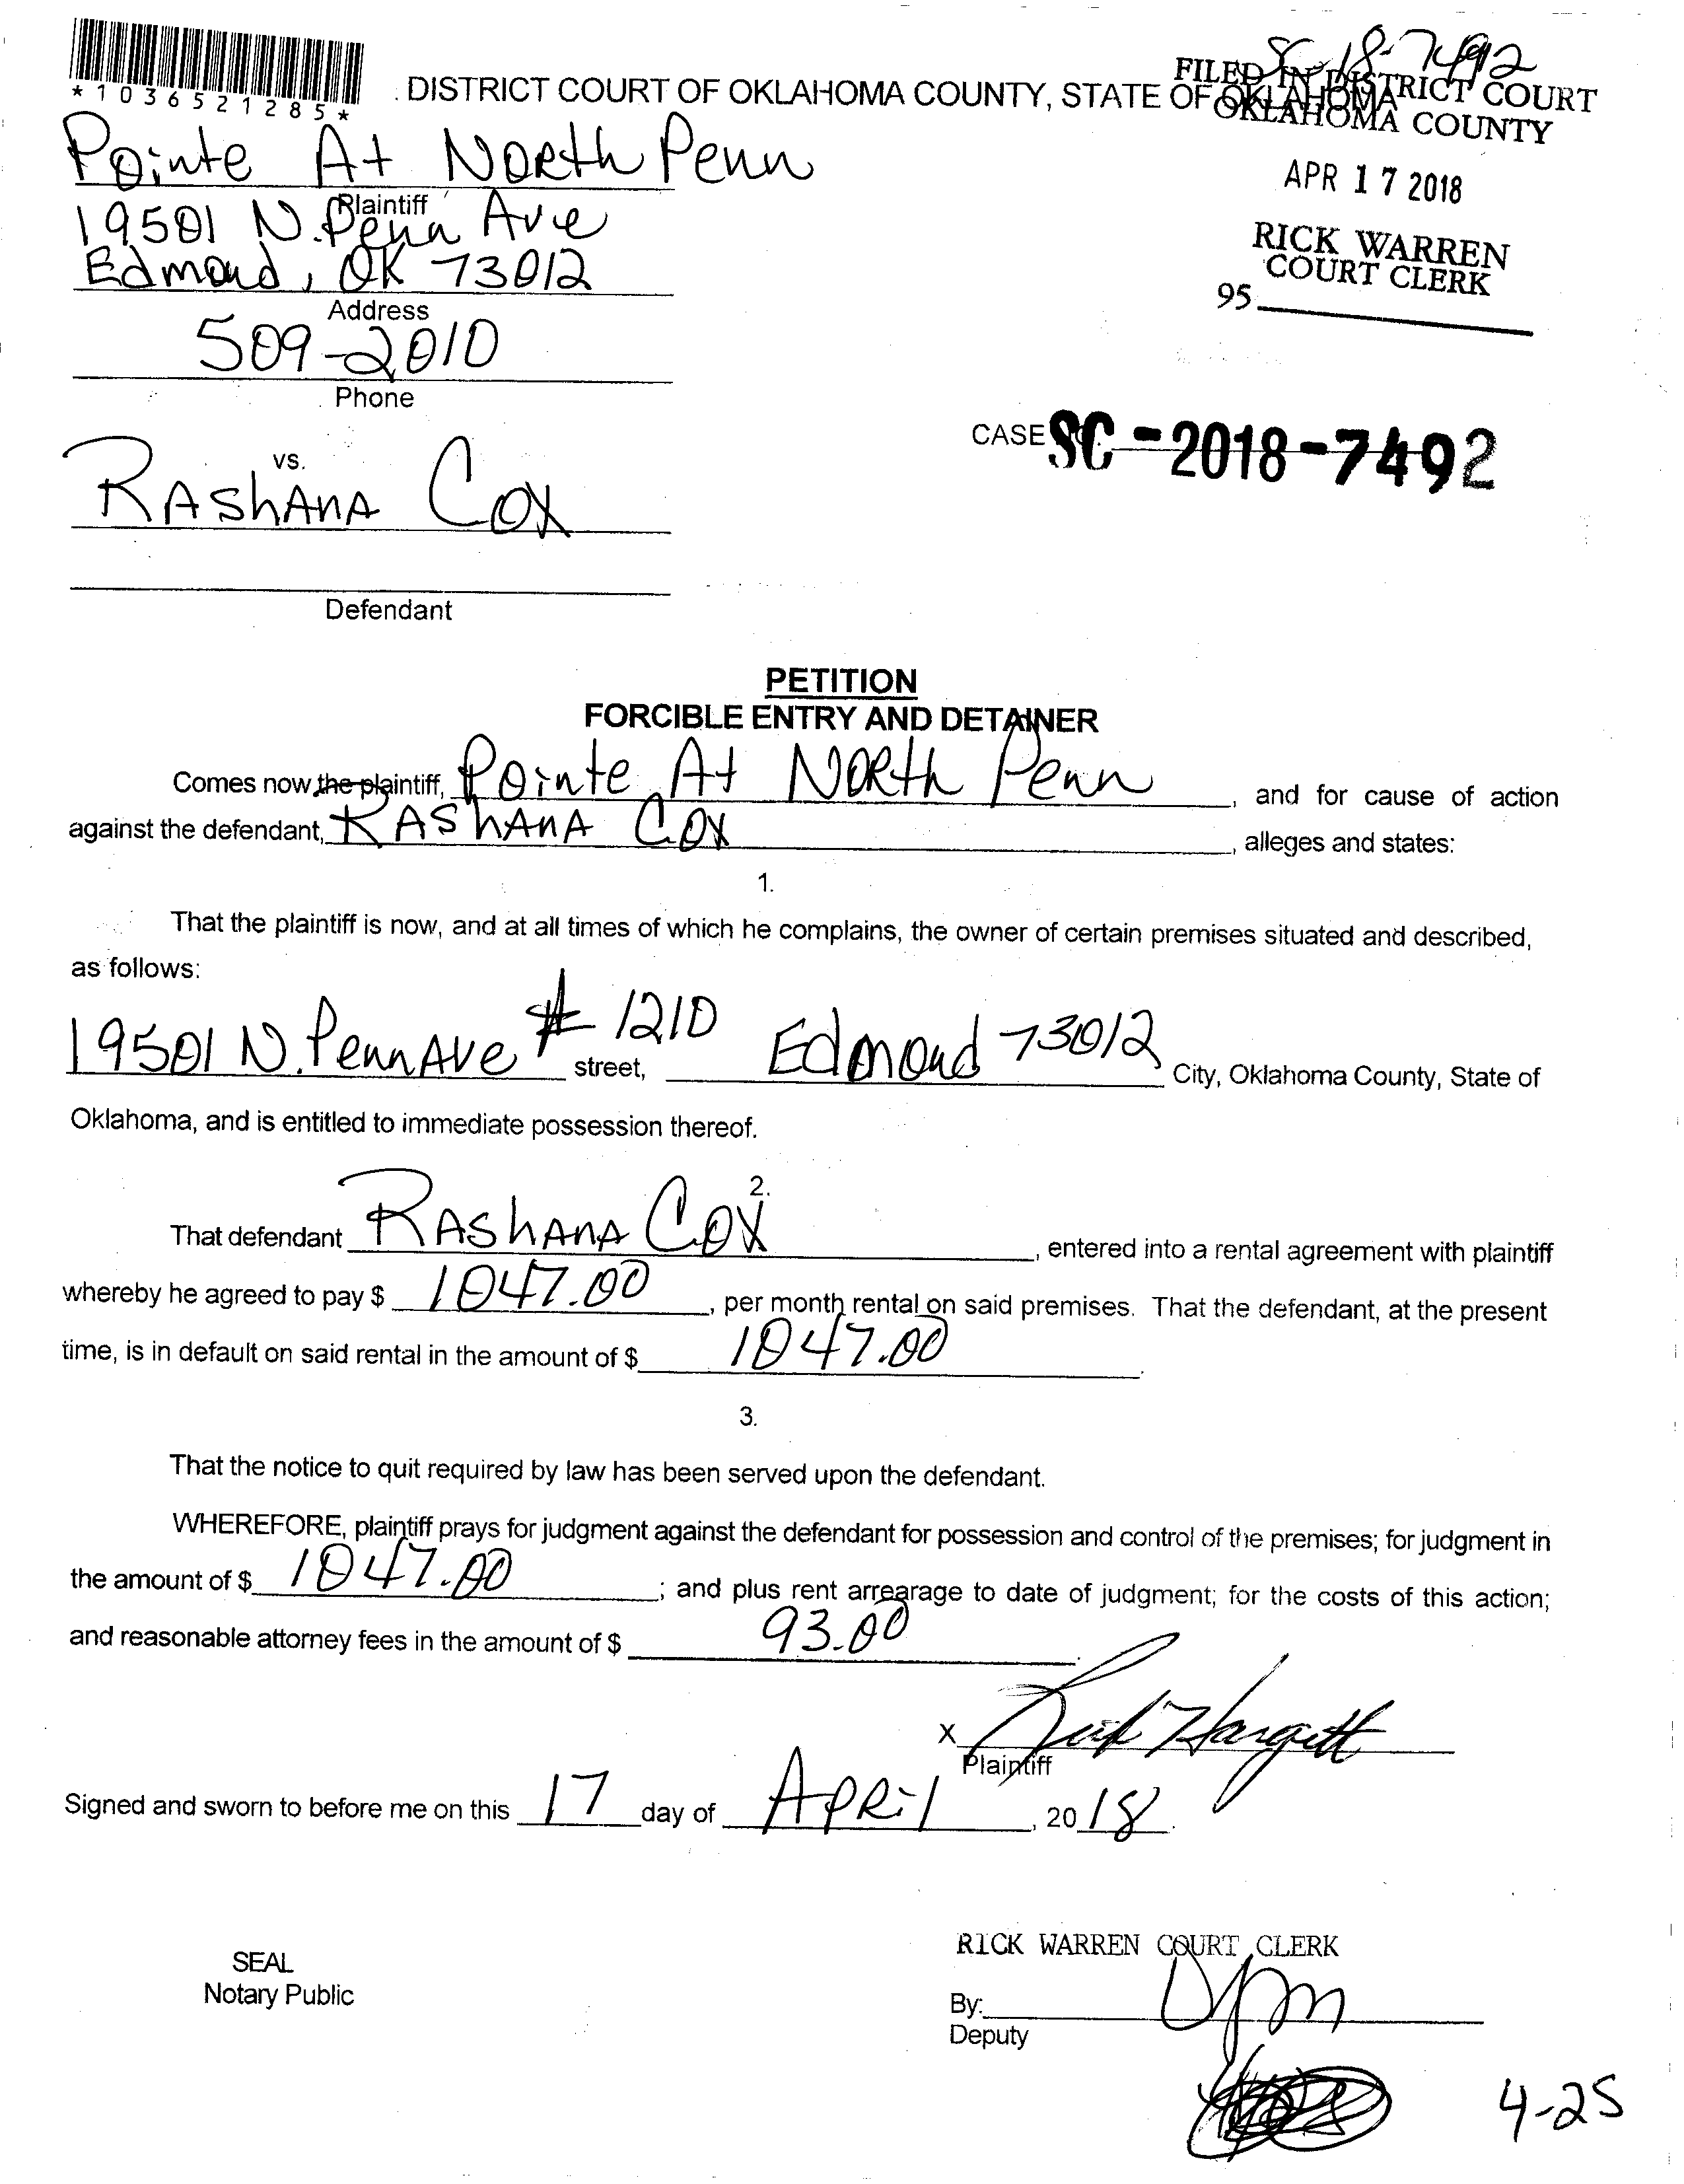 SC-18-7492
*1036521285*
DISTRICT COURT OF OKLAHOMA COUNTY, STATE OF OKLAHOMA
FILED IN DISTRICT COURT
OKLAHOMA COUNTY
Pointe At North Penn
APR 17 2018
Plaintiff
19501 N. Penn Ave
RICK WARREN
Edmond, OK 73012
COURT CLERK
95
Address
509-2010
Phone
CASE NO. SC-2018-7492
vs.
RAShAnA Cox
Defendant
PETITION
FORCIBLE ENTRY AND DETAINER
Comes now the plaintiff, Pointe At North Penn, and for cause of action
against the defendant, RAShAnA Cox, alleges and states:
1.
That the plaintiff is now, and at all times of which he complains, the owner of certain premises situated and described,
as follows:
19501 N. Penn Ave # 1210 street, Edmond 73012 City, Oklahoma County, State of
Oklahoma, and is entitled to immediate possession thereof.
2.
That defendant RAShAnA Cox, entered into a rental agreement with plaintiff
whereby he agreed to pay $ 1047.00, per month rental on said premises. That the defendant, at the present
time, is in default on said rental in the amount of $ 1047.00.
3.
That the notice to quit required by law has been served upon the defendant.
WHEREFORE, plaintiff prays for judgment against the defendant for possession and control of the premises; for judgment in
the amount of $ 1047.00; and plus rent arrearage to date of judgment; for the costs of this action;
and reasonable attorney fees in the amount of $ 93.00.
X
Plaintiff
Signed and sworn to before me on this 17 day of April, 2018.
RICK WARREN COURT CLERK
SEAL
Notary Public
By:
Deputy
4-25